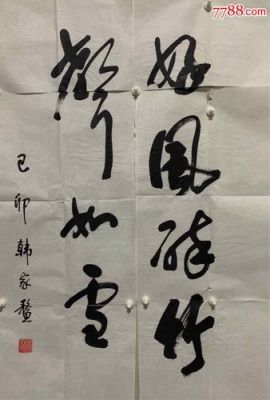 7788.com
好風碎竹
聲如雪
己卯韩家鳌